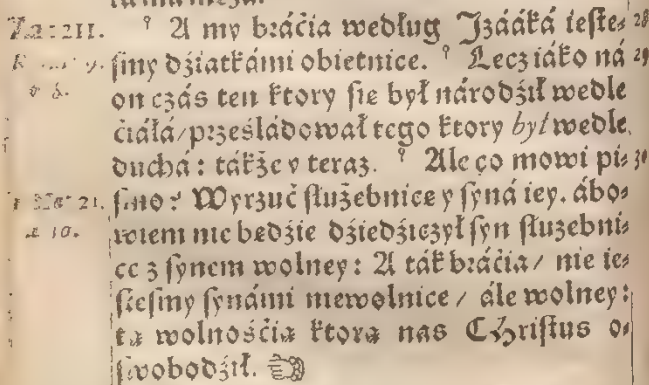 ° A my bráćia według Jzááká ieste⸗ 28
smy dźiatkámi obietnice. ° Lecz iáko ná 29
on czás ten ktory sie był národźił wedle
ćiáłá/ prześládował tego ktory był wedle
duchá: tákże y teraz. ° Ale co mowi pi⸗ 30
smo? Wyrzuć służebnicę y syná iey. ábo⸗
wiem nie będźie dźiedźiczył syn służebni⸗
ce z synem wolney: A ták bráćia/ nie ie⸗
steśmy synámi niewolnice/ ále wolney:
tą wolnośćią ktorą nas Christus o⸗
swobodźił. ☜
21.
10.